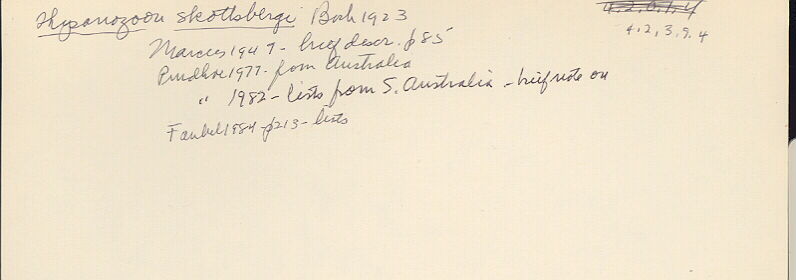 Thysanozoon skottsbergi Bock 1923
4.2.6.1.4
4.2.3.9.4
Marcus 1949 - brief descr. p85
Prudhoe 1977 - from Australia
" 1982 - lists from S. Australia - brief note on
Faubel 1984 - p213 - lists